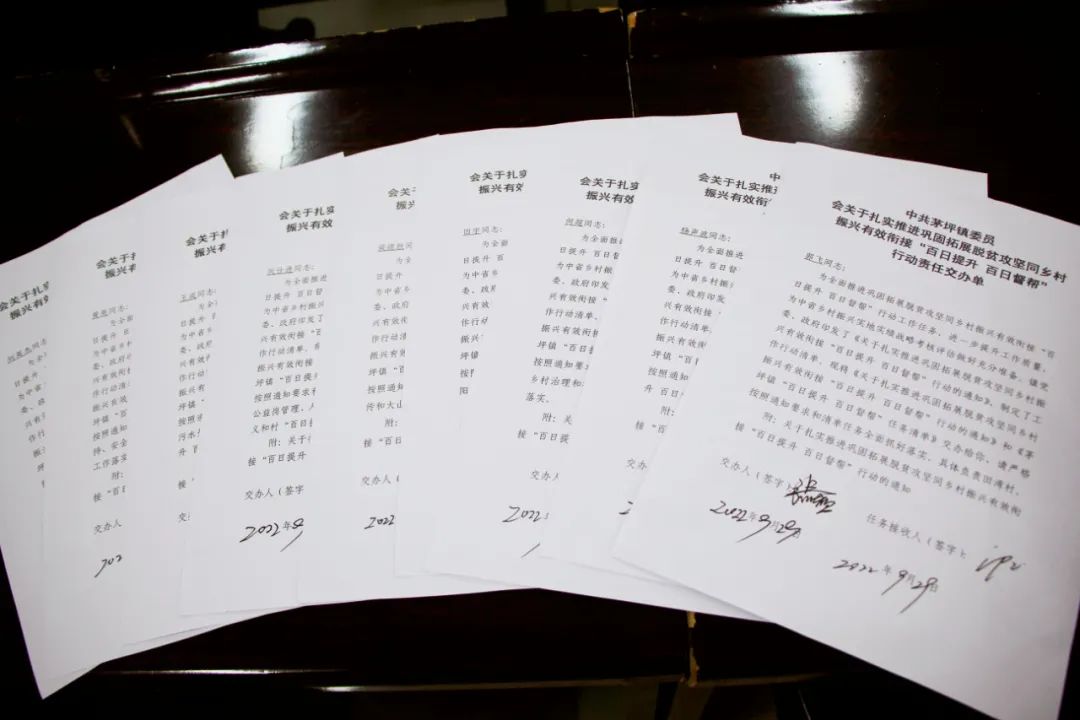 会关于扎实
振兴有效
同志：
为全
日提升
为中省
委、政
兴有
作行
振
坪
为全面
日提升
为中省乡
委、政府
兴有效
作行动清
振兴有效
坪镇“百
按照通知
持、安全
工作落实
附：
按“百日
交办人
会关于扎
振兴有
王成同志：
为
日提升
为中省
委、政府
兴有效
作行动
振兴有
坪镇“
按照
污水
升
会关于扎实
振兴有效
同志：
为全面推进
日提升 百日督
为中省乡村振兴
委、政府印发了
兴有效衔接“百
作行动清单，
振兴有效衔接
坪镇“百日提升
按照通知要求
公益岗管理、
义和村“百日
附：关于
按“百日提升
交办人（签字
2022年9
会关
振兴
同志：
为全
日提升
为中省
委、政府
兴有效
作行动清
振兴有效
坪镇“
按照通知
传和大
附：
按“百日
2022
会关于扎实
振兴有效
田宇同志：
为全面
日提升
为中省
委、政府
兴有效
作行动
振兴
坪镇
按
阳
会关于扎实
振兴有效
同志：
为全面
日提升 百
为中省乡村
委、政府印发
兴有效衔接
作行动清单，
振兴有效衔接
坪镇“百日提升
按照通知要求
乡村治理和
落实。
附：关
按“百日提
2022
中
会关于扎实推进
振兴有效衔
杨声波同志：
为全面推进
日提升 百日督
为中省乡村振
委、政府印发
兴有效衔接“
作行动清单
振兴有效衔接
坪镇“百日
按照通知
升 百日
附：
按“百
交办人
2022
中共茅坪镇委员
会关于扎实推进巩固拓展脱贫攻坚同乡村
振兴有效衔接“百日提升 百日督帮”
行动责任交办单
班飞同志：
为全面推进巩固拓展脱贫攻坚同乡村振兴有效衔接“百
日提升 百日督帮”行动工作任务，进一步提升工作质量，
为中省乡村振兴实地实绩战略考核评估做好充分准备，镇党
委、政府印发了《关于扎实推进巩固拓展脱贫攻坚同乡村振
兴有效衔接“百日提升 百日督帮”行动的通知》，制定了工
作行动清单，现将《关于扎实推进巩固拓展脱贫攻坚同乡村
振兴有效衔接“百日提升 百日督帮”行动的通知》和《茅
坪镇“百日提升 百日督帮”任务清单》交办给你，请严格
按照通知要求和清单任务全面抓好落实，具体负责田湾村。
附：关于扎实推进巩固拓展脱贫攻坚同乡村振兴有效衔
接“百日提升 百日督帮”行动的通知
交办人（签字）
2022年9月29日
任务接收人（签字）：
2022年9月29日